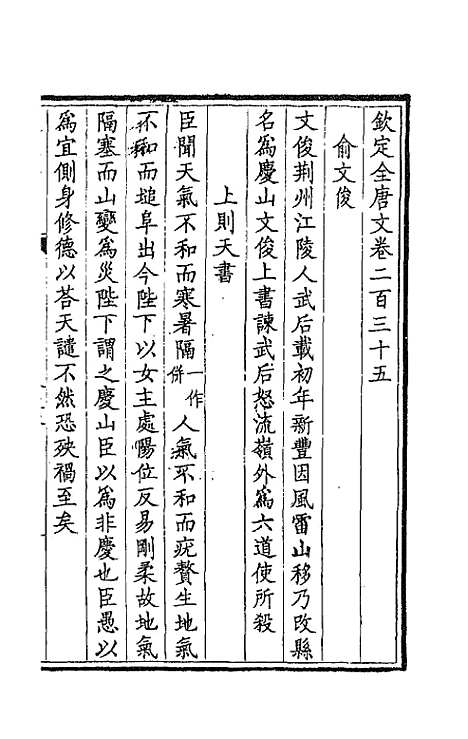 欽定全唐文卷二百三十五
俞文俊
文俊荆州江陵人武后載初年新豐因風雷山移乃改縣
名爲慶山文俊上書諫武后怒流嶺外爲六道使所殺
上則天書
臣聞天氣不和而寒暑隔一作併人氣不和而疣贅生地氣
不和而塠阜出今陛下以女主處陽位反易剛柔故地氣
隔塞而山變爲災陛下謂之慶山臣以爲非慶也臣愚以
爲宜側身修德以荅天譴不然恐殃禍至矣